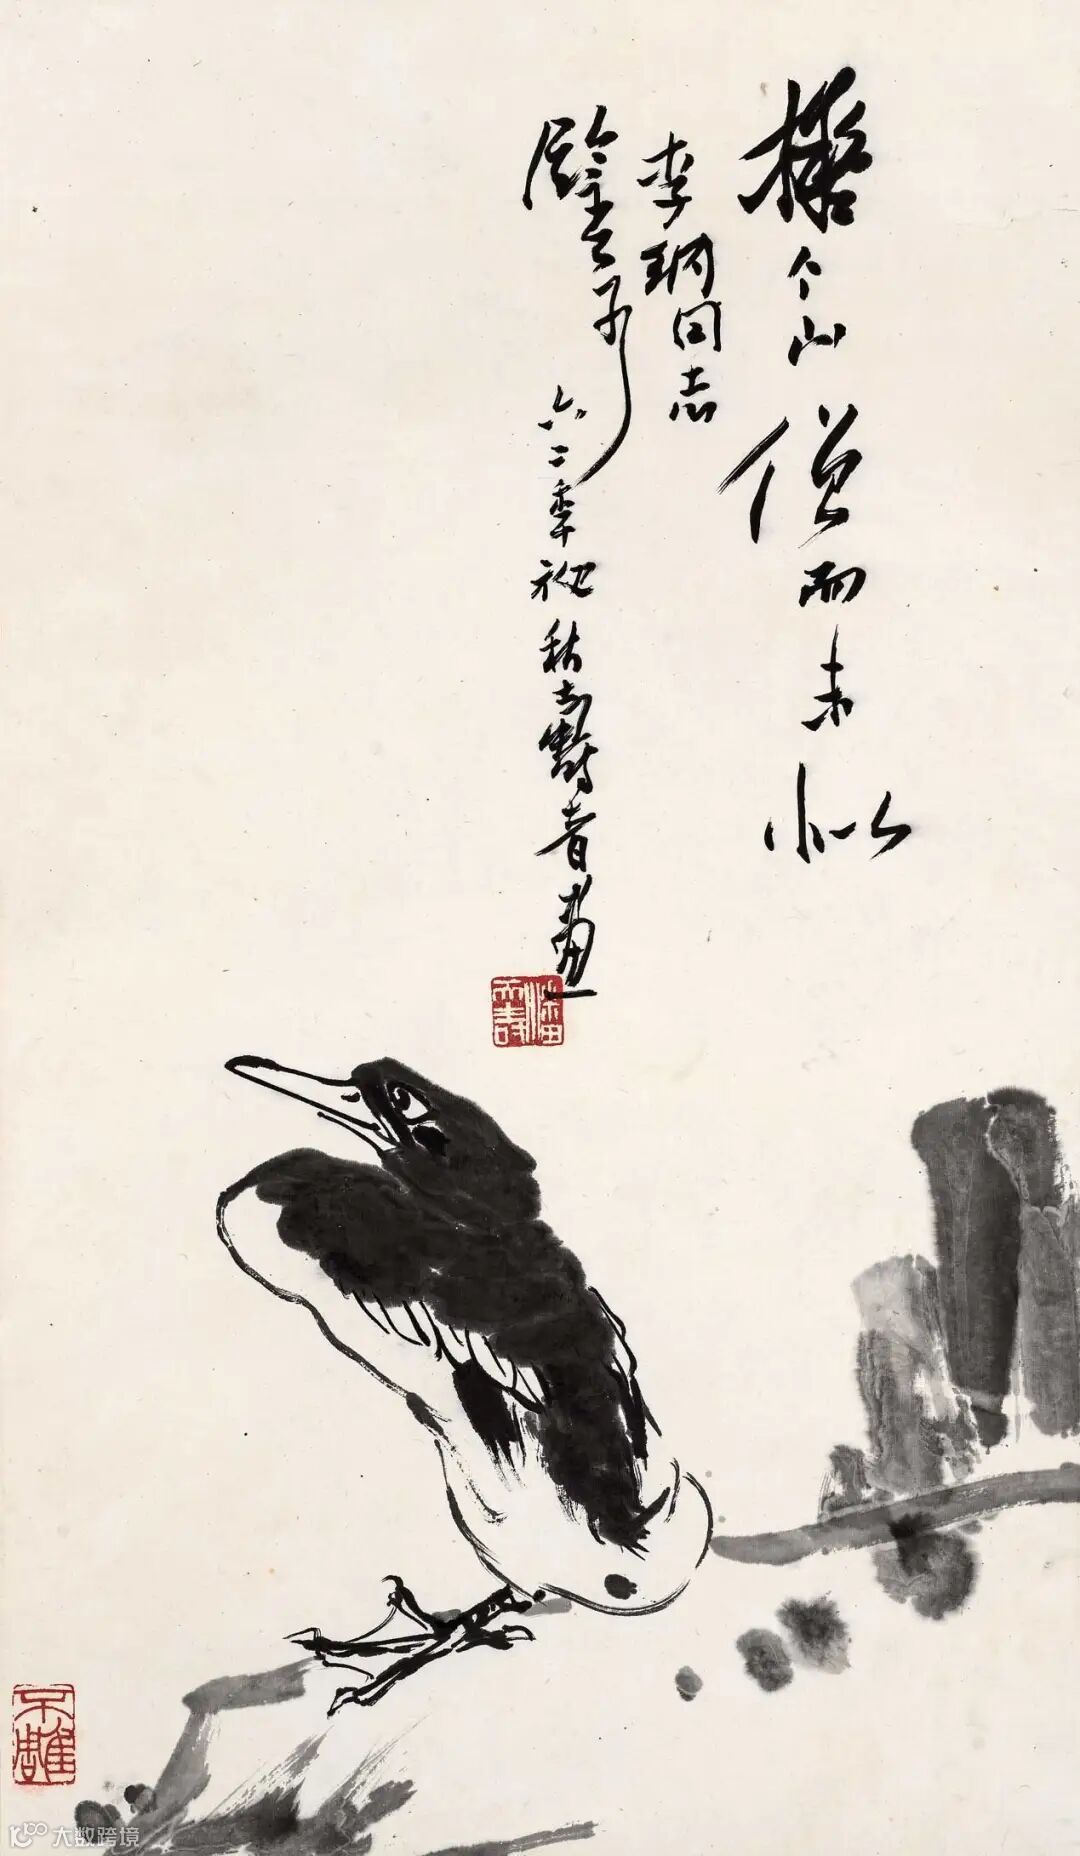 擬个山僧而未似
李 同志
鑒
六二季初秋壽者畫
潘天壽
不雕
大数跨境